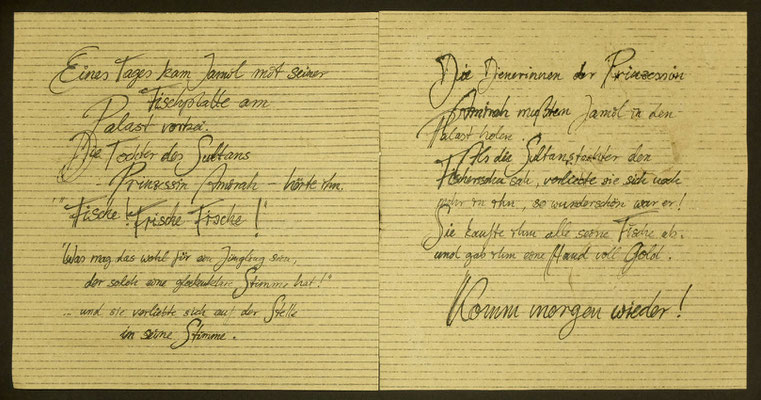 Eines Tages kam Jamil mit seiner
Fischplatte am
Palast vorbei.
Die Tochter des Sultans
- Prinzessin Amirah - hörte ihn.
"Fische! Frische Fische!"
"Was mag das wohl für ein Jüngling sein,
der solch eine glockenklare Stimme hat!"
... und sie verliebte sich auf der Stelle
in seine Stimme.
Die Dienerinnen der Prinzessin
Amirah mußten Jamil in den
Palast holen.
Als die Sultanstochter den
Fischerssohn sah, verliebte sie sich noch
mehr in ihn, so wunderschön war er!
Sie kaufte ihm alle seine Fische ab
und gab ihm eine Hand voll Gold.
Komm morgen wieder!